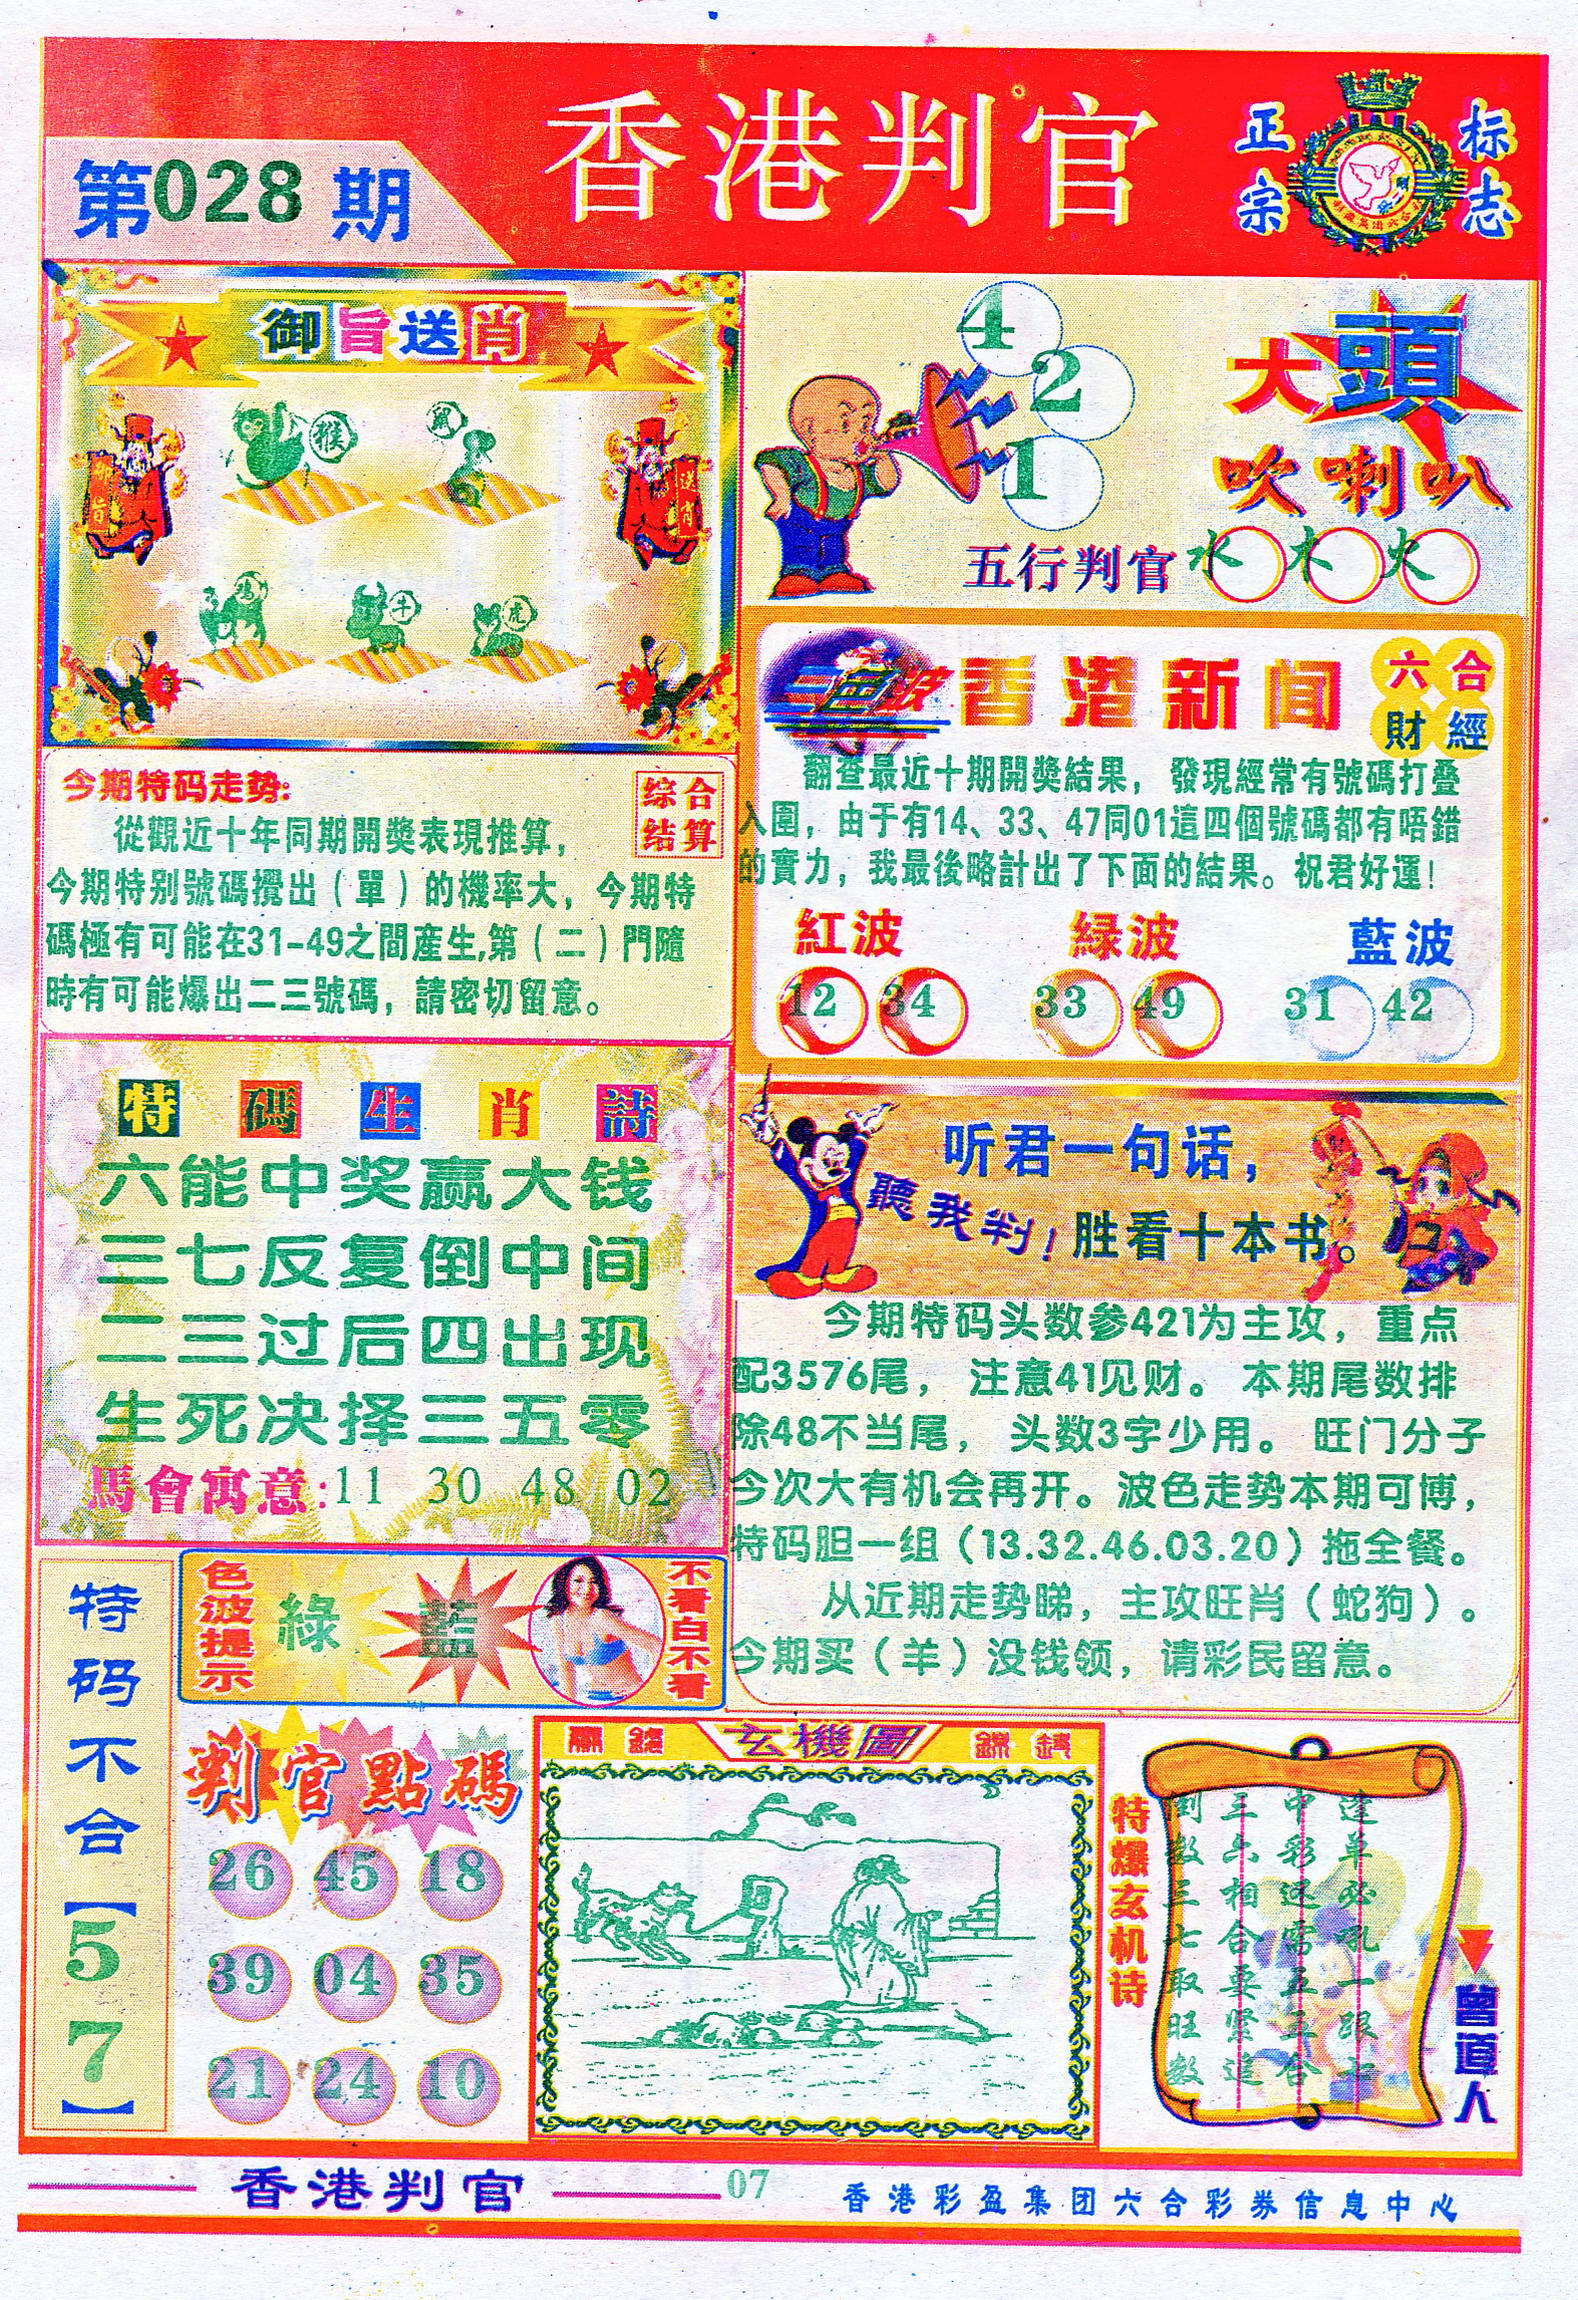 香港判官
第028期
正宗
标志
御旨送肖
猴 鼠
鸡 牛 虎
御旨
送肖
4
2
1
大頭
吹喇叭
五行判官 水 木 火
三色波
香港新闻
六合
財經
翻查最近十期開獎結果，發現經常有號碼打叠
入圍，由于有14、33、47同01這四個號碼都有唔錯
的實力，我最後略計出了下面的結果。祝君好運！
紅波 緑波 藍波
12 34 33 49 31 42
今期特码走势:
综合
结算
從觀近十年同期開獎表現推算，
今期特别號碼攪出（單）的機率大，今期特
碼極有可能在31-49之間産生,第（二）門隨
時有可能爆出二三號碼，請密切留意。
特碼生肖詩
六能中奖赢大钱
三七反复倒中间
二三过后四出现
生死决择三五零
馬會寓意:11 30 48 02
听君一句话，
聽我判！
胜看十本书。
今期特码头数参421为主攻，重点
配3576尾，注意41见财。本期尾数排
除48不当尾，头数3字少用。旺门分子
今次大有机会再开。波色走势本期可博，
特码胆一组（13.32.46.03.20）拖全餐。
从近期走势睇，主攻旺肖（蛇狗）。
今期买（羊）没钱领，请彩民留意。
特码不合【57】
色波提示
綠 藍
不看白不看
判官點碼
26 45 18
39 04 35
21 24 10
玄機圖
特爆玄机诗
逢单必吼一跟七
中彩迅需五五合
三六相合要紧追
倒数三七取旺数
曾道人
香港判官
07
香港彩盈集团六合彩券信息中心